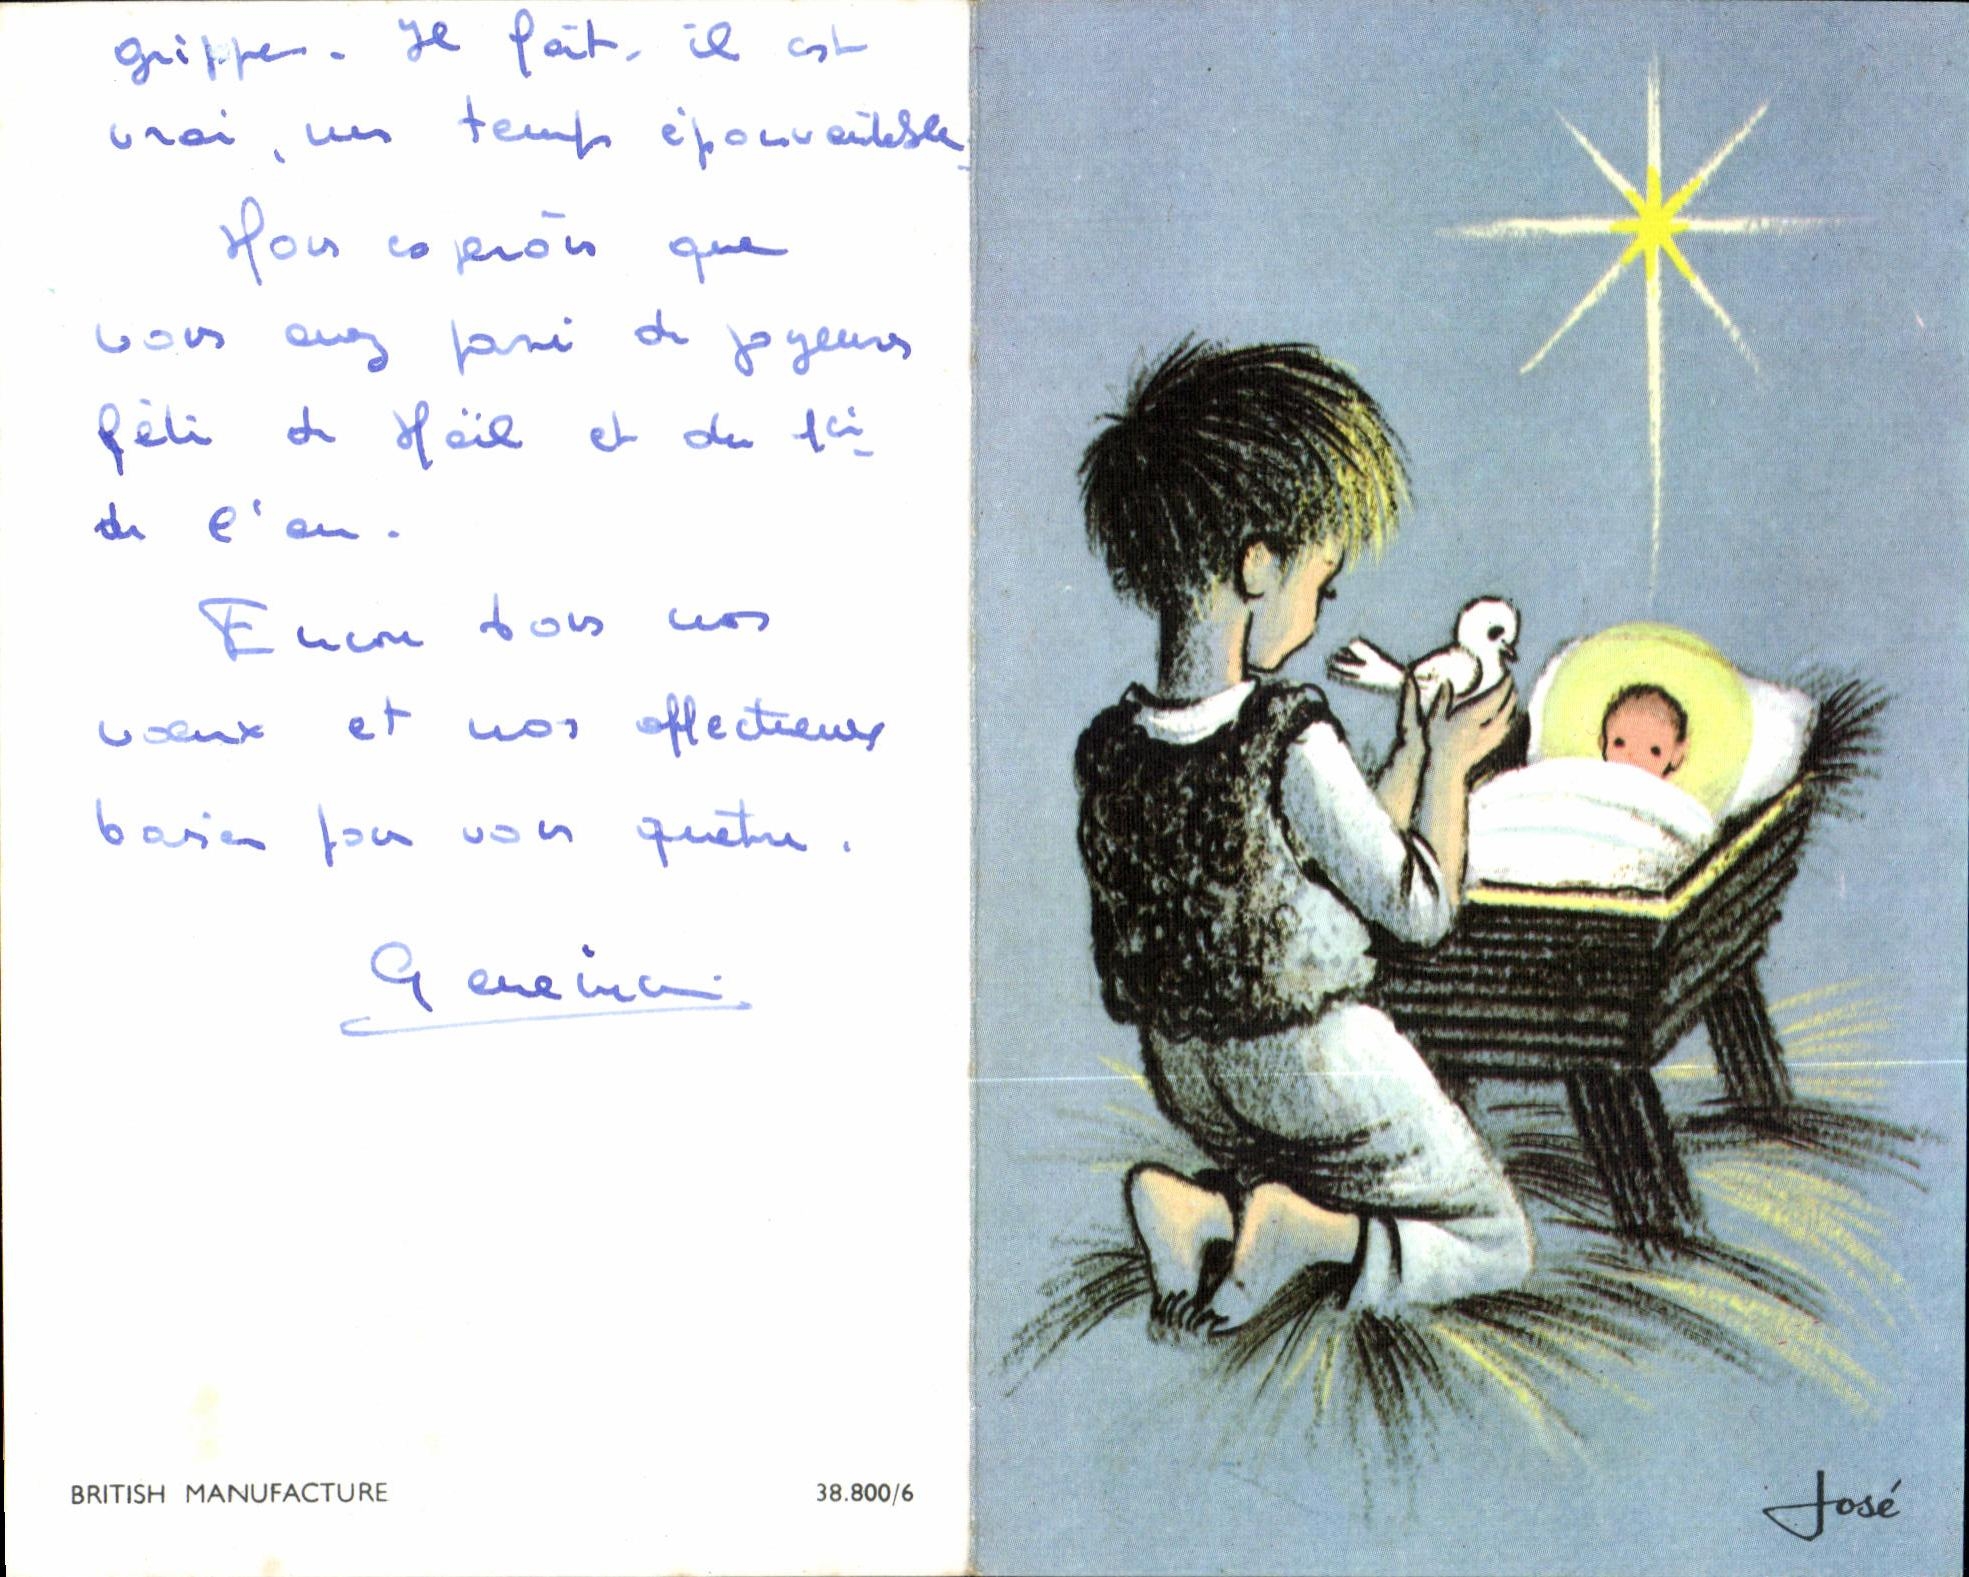 grippe. Il fait, il est
vrai, un temps épouvantable.
Nous espérons que
vous avez passé de joyeuses
fêtes de Noël et du 1er
de l'an.
Encore tous nos
voeux et nos affectueux
baisers pour vous quatre.
BRITISH MANUFACTURE
38.800/6
José